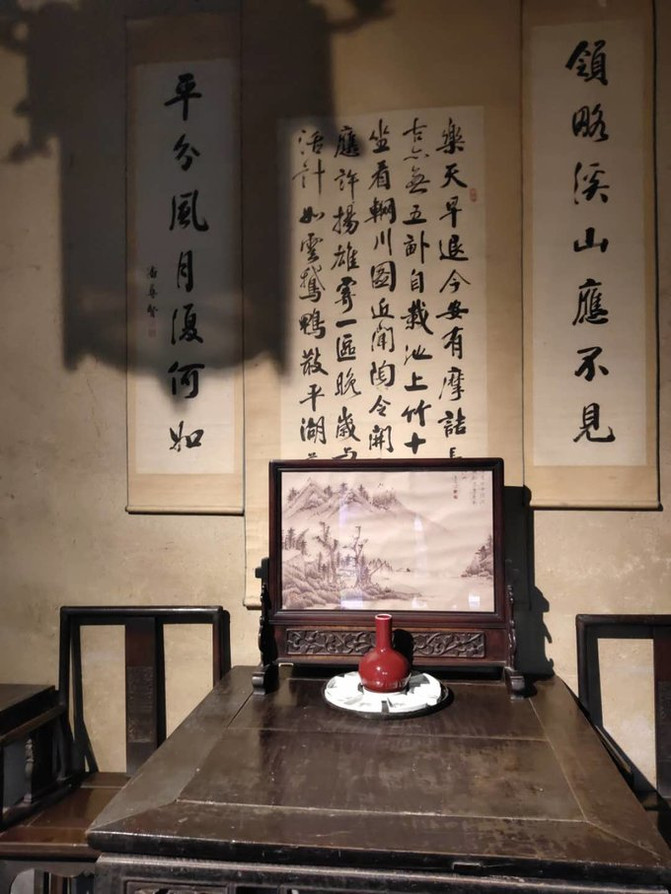 領略溪山應不見
樂天早退今安有摩詰長
古亦無五畝自栽池上竹十
坐看輞川圖近聞陶令開
應許揚雄寄一區晚歲與
活計如雲鵝鴨散平湖
平分風月復何如